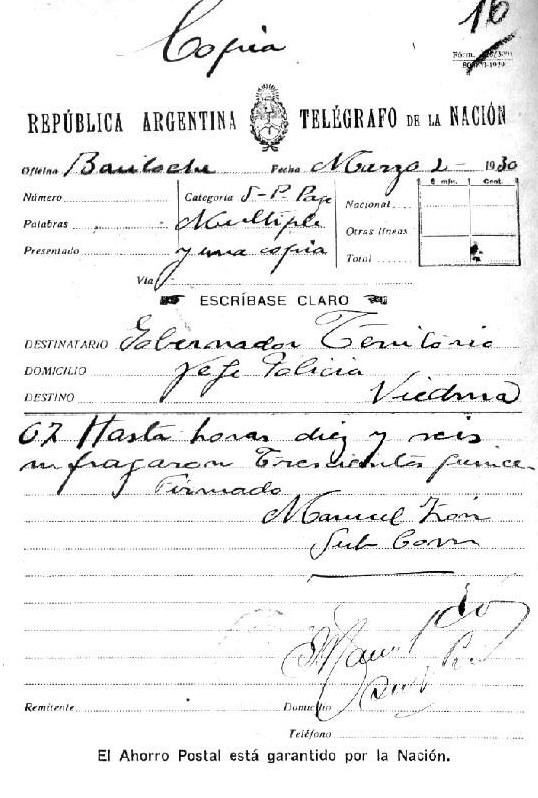 16
Copia
REPÚBLICA ARGENTINA TELÉGRAFO DE LA NACIÓN
Oficina Bariloche Fecha Marzo 2 - 1930
Número Categoría S-P- Page Nacional 8 mſn. Cent.
Palabras Multiple Otras líneas
Presentado y una copia Total
Vía
ESCRÍBASE CLARO
DESTINATARIO Gobernador Territorio
DOMICILIO Jefe Policia
DESTINO Viedma
07 Hasta horas diez y seis
sufragaron Trescientos quince
Firmado
Manuel
Sub Com
Remitente Domicilio
Teléfono
El Ahorro Postal está garantido por la Nación.